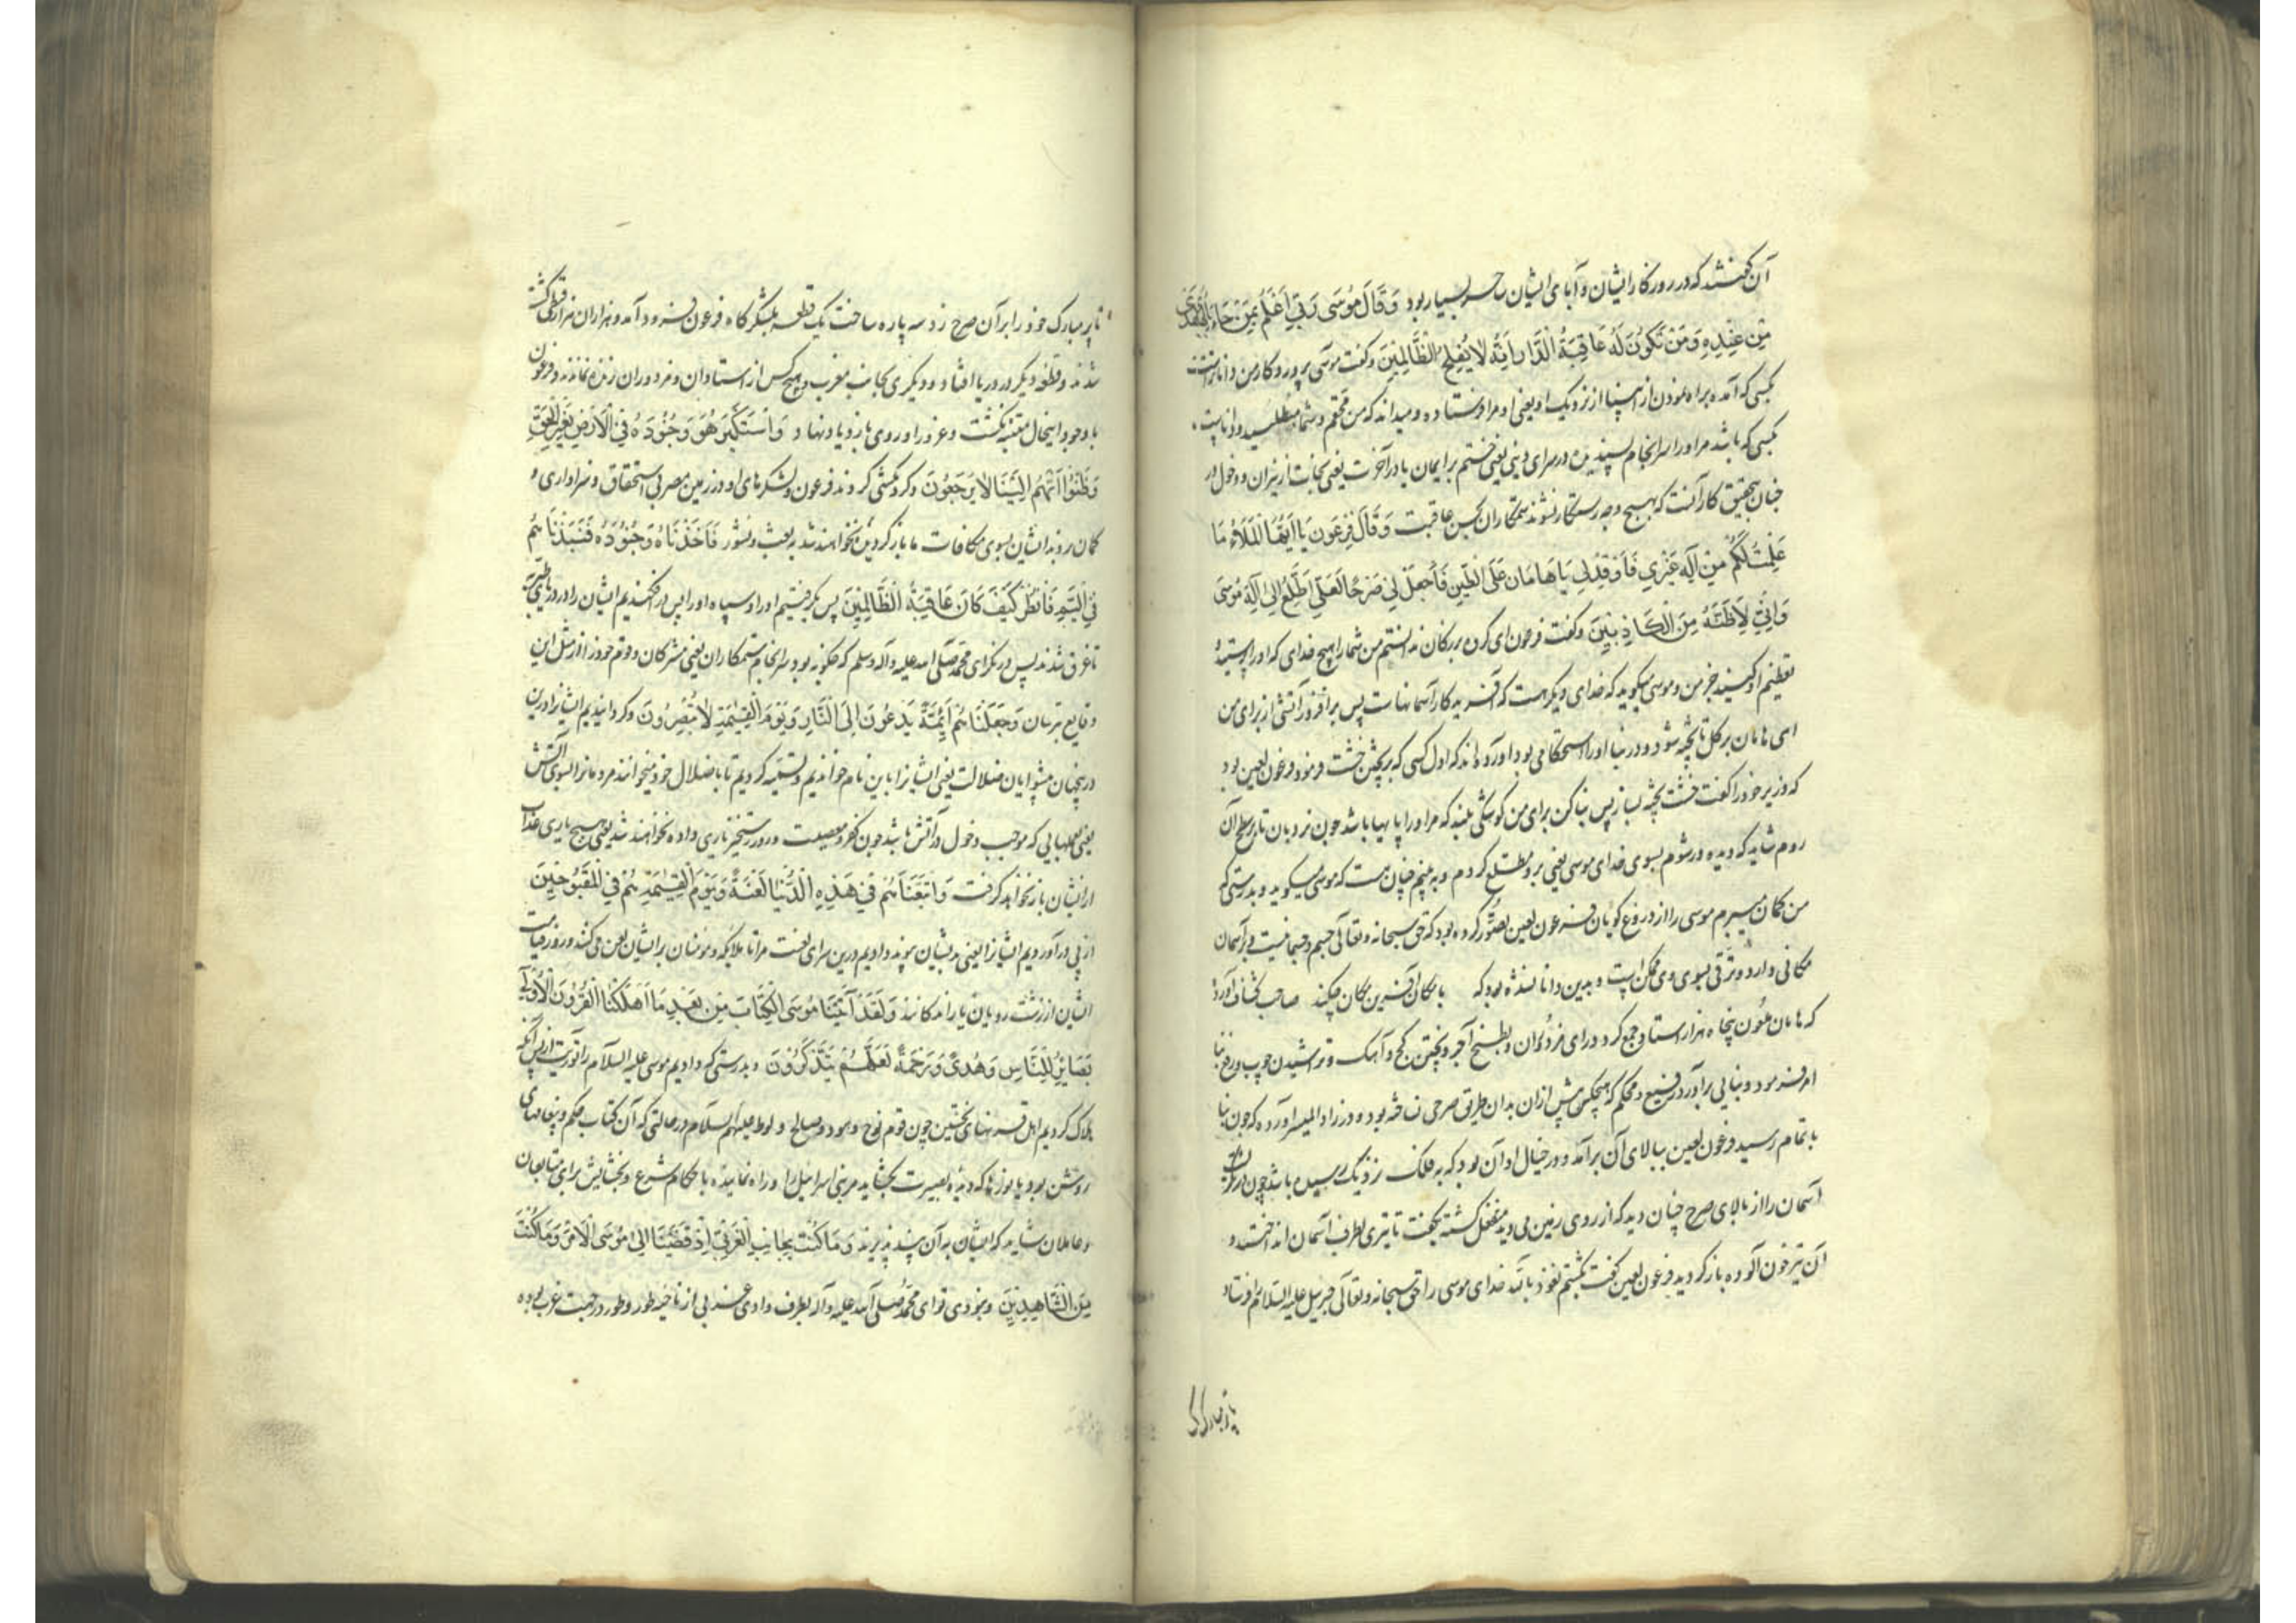 آن گفتند که در روزگار ایشان و آبای ایشان سحر بسیار بود وَقَالَ مُوسَى رَبِّي أَعْلَمُ بِمَنْ جَاءَ بِالْهُدَى
مِنْ عِنْدِهِ وَمَنْ تَكُونُ لَهُ عَاقِبَةُ الدَّارِ إِنَّهُ لَا يُفْلِحُ الظَّالِمُونَ و گفت موسی پروردگار من داناتر است
بکسی که آمده براه نمودن از نزدیک او یعنی او مرا فرستاده و میداند که من محقم و شما مبطلید و داناست
بکسی که باشد مر او را سرانجام پسندیده در سرای دینی یعنی ختم بر ایمان یا در آخرت یعنی نجات از نیران و دخول در
جنان بتحقیق کار آنست که بهیچ وجه رستکار نشوند ستمکاران بحسن عاقبت وَقَالَ فِرْعَوْنُ يَا أَيُّهَا الْمَلَأُ مَا
عَلِمْتُ لَكُمْ مِنْ إِلَهٍ غَيْرِي فَأَوْقِدْ لِي يَا هَامَانُ عَلَى الطِّينِ فَاجْعَلْ لِي صَرْحًا لَعَلِّي أَطَّلِعُ إِلَى إِلَهِ مُوسَى
وَإِنِّي لَأَظُنُّهُ مِنَ الْكَاذِبِينَ و گفت فرعون ای گروه بزرگان ندانستم من شما را هیچ خدای که او را پرستید
تعظیم او کنید جز من و موسی میگوید که خدای دیگر هست که آفریدگار آسمانهاست پس بر افروز آتشی از برای من
ای هامان بر گل تا پخته شود و در بنا او را استحکامی بود آورده اند که اول کسی که بپختن خشت فرمود فرعون لعین بود
که وزیر خود را گفت خشت پخته بساز پس بنا کن برای من کوشکی بلند که مر او را پایها باشد چون نردبان تا بر سطح آن
روم شاید که دیده ور شوم بسوی خدای موسی یعنی برو مطلع گردم و به بینم چنان هست که موسی میگوید و بدرستی که
من گمان میبرم موسی را از دروغ گویان فرعون لعین تصور کرده بود که حق سبحانه و تعالی جسم و جسمانیست و بر آسمان
مکانی دارد و ترقی بسوی وی ممکن است و بدین دانا نشده بود که با مکان آفرین مکان چکند صاحب کشاف آورده
که هامان ملعون پنجاه هزار استاد جمع کرد ورای مزدوران و بطبخ آجر و پختن گچ و آهک و تراشیدن چوب و رفع بنا
امر فرمود و بنایی بر آورد رفیع و محکم که هیچکس پیش ازان بدان طریق صرحی نساخته بود و در زاد المیسر آورده که چون بنا
باتمام رسید فرعون لعین ببالای آن برآمد و در خیال او آن بود که به فلک نزدیک رسیده باشد چون
آسمان را از بالای صرح چنان دید که از روی زمین می دید منفعل گشته بگفت تا تیری بطرف آسمان انداختند و
آن تیر خون آلوده باز گردید فرعون لعین گفت بکشتم نعوذ بالله خدای موسی را حق سبحانه و تعالی جبرییل علیه السلام را فرستاد
تا پر مبارک خود را بر آن صرح زد سه پاره ساخت یک قطعه بلشکرگاه فرعون فرود آمد و هزاران هزار قبطی کشته
شدند و قطعه دیگر در دریا افتاد و دیگری بجانب مغرب و هیچ کس از استادان و مزدوران زنده نماندند و فرعون
با وجود اینحال متنبه نگشت و غرور او روی بازدیاد نهاد وَاسْتَكْبَرَ هُوَ وَجُنُودُهُ فِي الْأَرْضِ بِغَيْرِ الْحَقِّ
وَظَنُّوا أَنَّهُمْ إِلَيْنَا لَا يُرْجَعُونَ و گردنکشی کردند فرعون و لشکرهای او در زمین مصر بی استحقاق و سزاواری و
گمان بردند ایشان بسوی مکافات ما باز گردیده نخواهند شد به بعث و نشور فَأَخَذْنَاهُ وَجُنُودَهُ فَنَبَذْنَاهُمْ
فِي الْيَمِّ فَانْظُرْ كَيْفَ كَانَ عَاقِبَةُ الظَّالِمِينَ پس بگرفتیم او را و سپاه او را پس در افکندیم ایشان را در دریای
تا غرق شدند پس درنگر ای محمد صلی الله علیه و آله وسلم که چگونه بود سرانجام ستمکاران یعنی مشرکان و قوم خود را از مثل این
وقایع بترسان وَجَعَلْنَاهُمْ أَئِمَّةً يَدْعُونَ إِلَى النَّارِ وَيَوْمَ الْقِيَمَةِ لَا يُنْصَرُونَ و گردانیدیم ایشانرا درین
در جهان پیشوایان ضلالت یعنی ایشانرا باین نام خواندیم و تسمیه کردیم تا باضلال خود میخوانند مردمانرا بسوی آتش
یعنی بعملهایی که موجب دخول در آتش باشد چون کفر و معصیت و روز رستخیز یاری داده نخواهند شد یعنی هیچ یاری عذاب
از ایشان باز نخواهد گرفت وَأَتْبَعْنَاهُمْ فِي هَذِهِ الدُّنْيَا لَعْنَةً وَيَوْمَ الْقِيَمَةِ هُمْ مِنَ الْمَقْبُوحِينَ
از پی در آوردیم ایشانرا یعنی بدیشان پیوند دادیم درین سرای لعنت مرا تا ملایکه و مومنان بر ایشان لعن می کنند و روز قیامت
ایشان از زشت رویان یا راندگانند وَلَقَدْ آتَيْنَا مُوسَى الْكِتَابَ مِنْ بَعْدِ مَا أَهْلَكْنَا الْقُرُونَ الْأُولَى
بَصَائِرَ لِلنَّاسِ وَهُدًى وَرَحْمَةً لَعَلَّهُمْ يَتَذَكَّرُونَ و بدرستی که دادیم موسی علیه السلام را توریت از پس آنکه
هلاک کردیم اهل قرنهای نخستین چون قوم نوح و هود و صالح و لوط علیهم السلام در حالتی که آن کتاب حکم و پیغامهای
روشن بود یا نورها که دیده بصیرت بگشاید مر بنی اسراییل را و راه نماینده باحکام شرع و بخشایش برای متابعان
و عاملان شاید که ایشان به آن پند پذیرند وَمَا كُنْتَ بِجَانِبِ الْغَرْبِيِّ إِذْ قَضَيْنَا إِلَى مُوسَى الْأَمْرَ وَمَا كُنْتَ
مِنَ الشَّاهِدِينَ و نبودی تو ای محمد صلی الله علیه و آله بطرف وادی غربی از ناحیه طور و طور در جهت غرب بوده